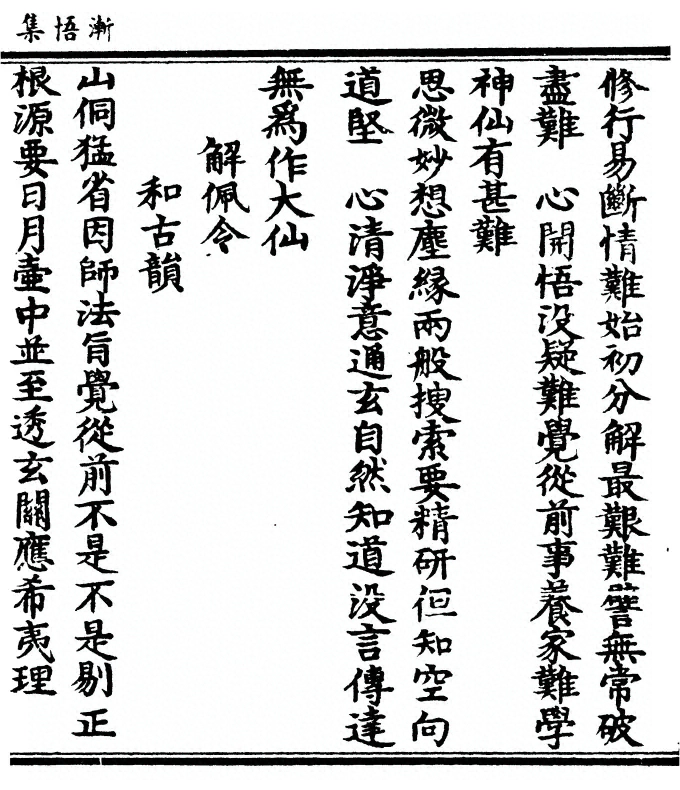 漸悟集
修行易斷情難始初分解最艱難譬無常破
盡難　心開悟没疑難覺從前事養家難學
神仙有甚難
思微妙想塵緣兩般搜索要精研但知空向
道堅　心清淨意通玄自然知道没言傳達
無為作大仙
解佩令
和古韻
山侗猛省因師法旨覺從前不是不是剔正
根源要日月壷中並至透玄關應希夷理